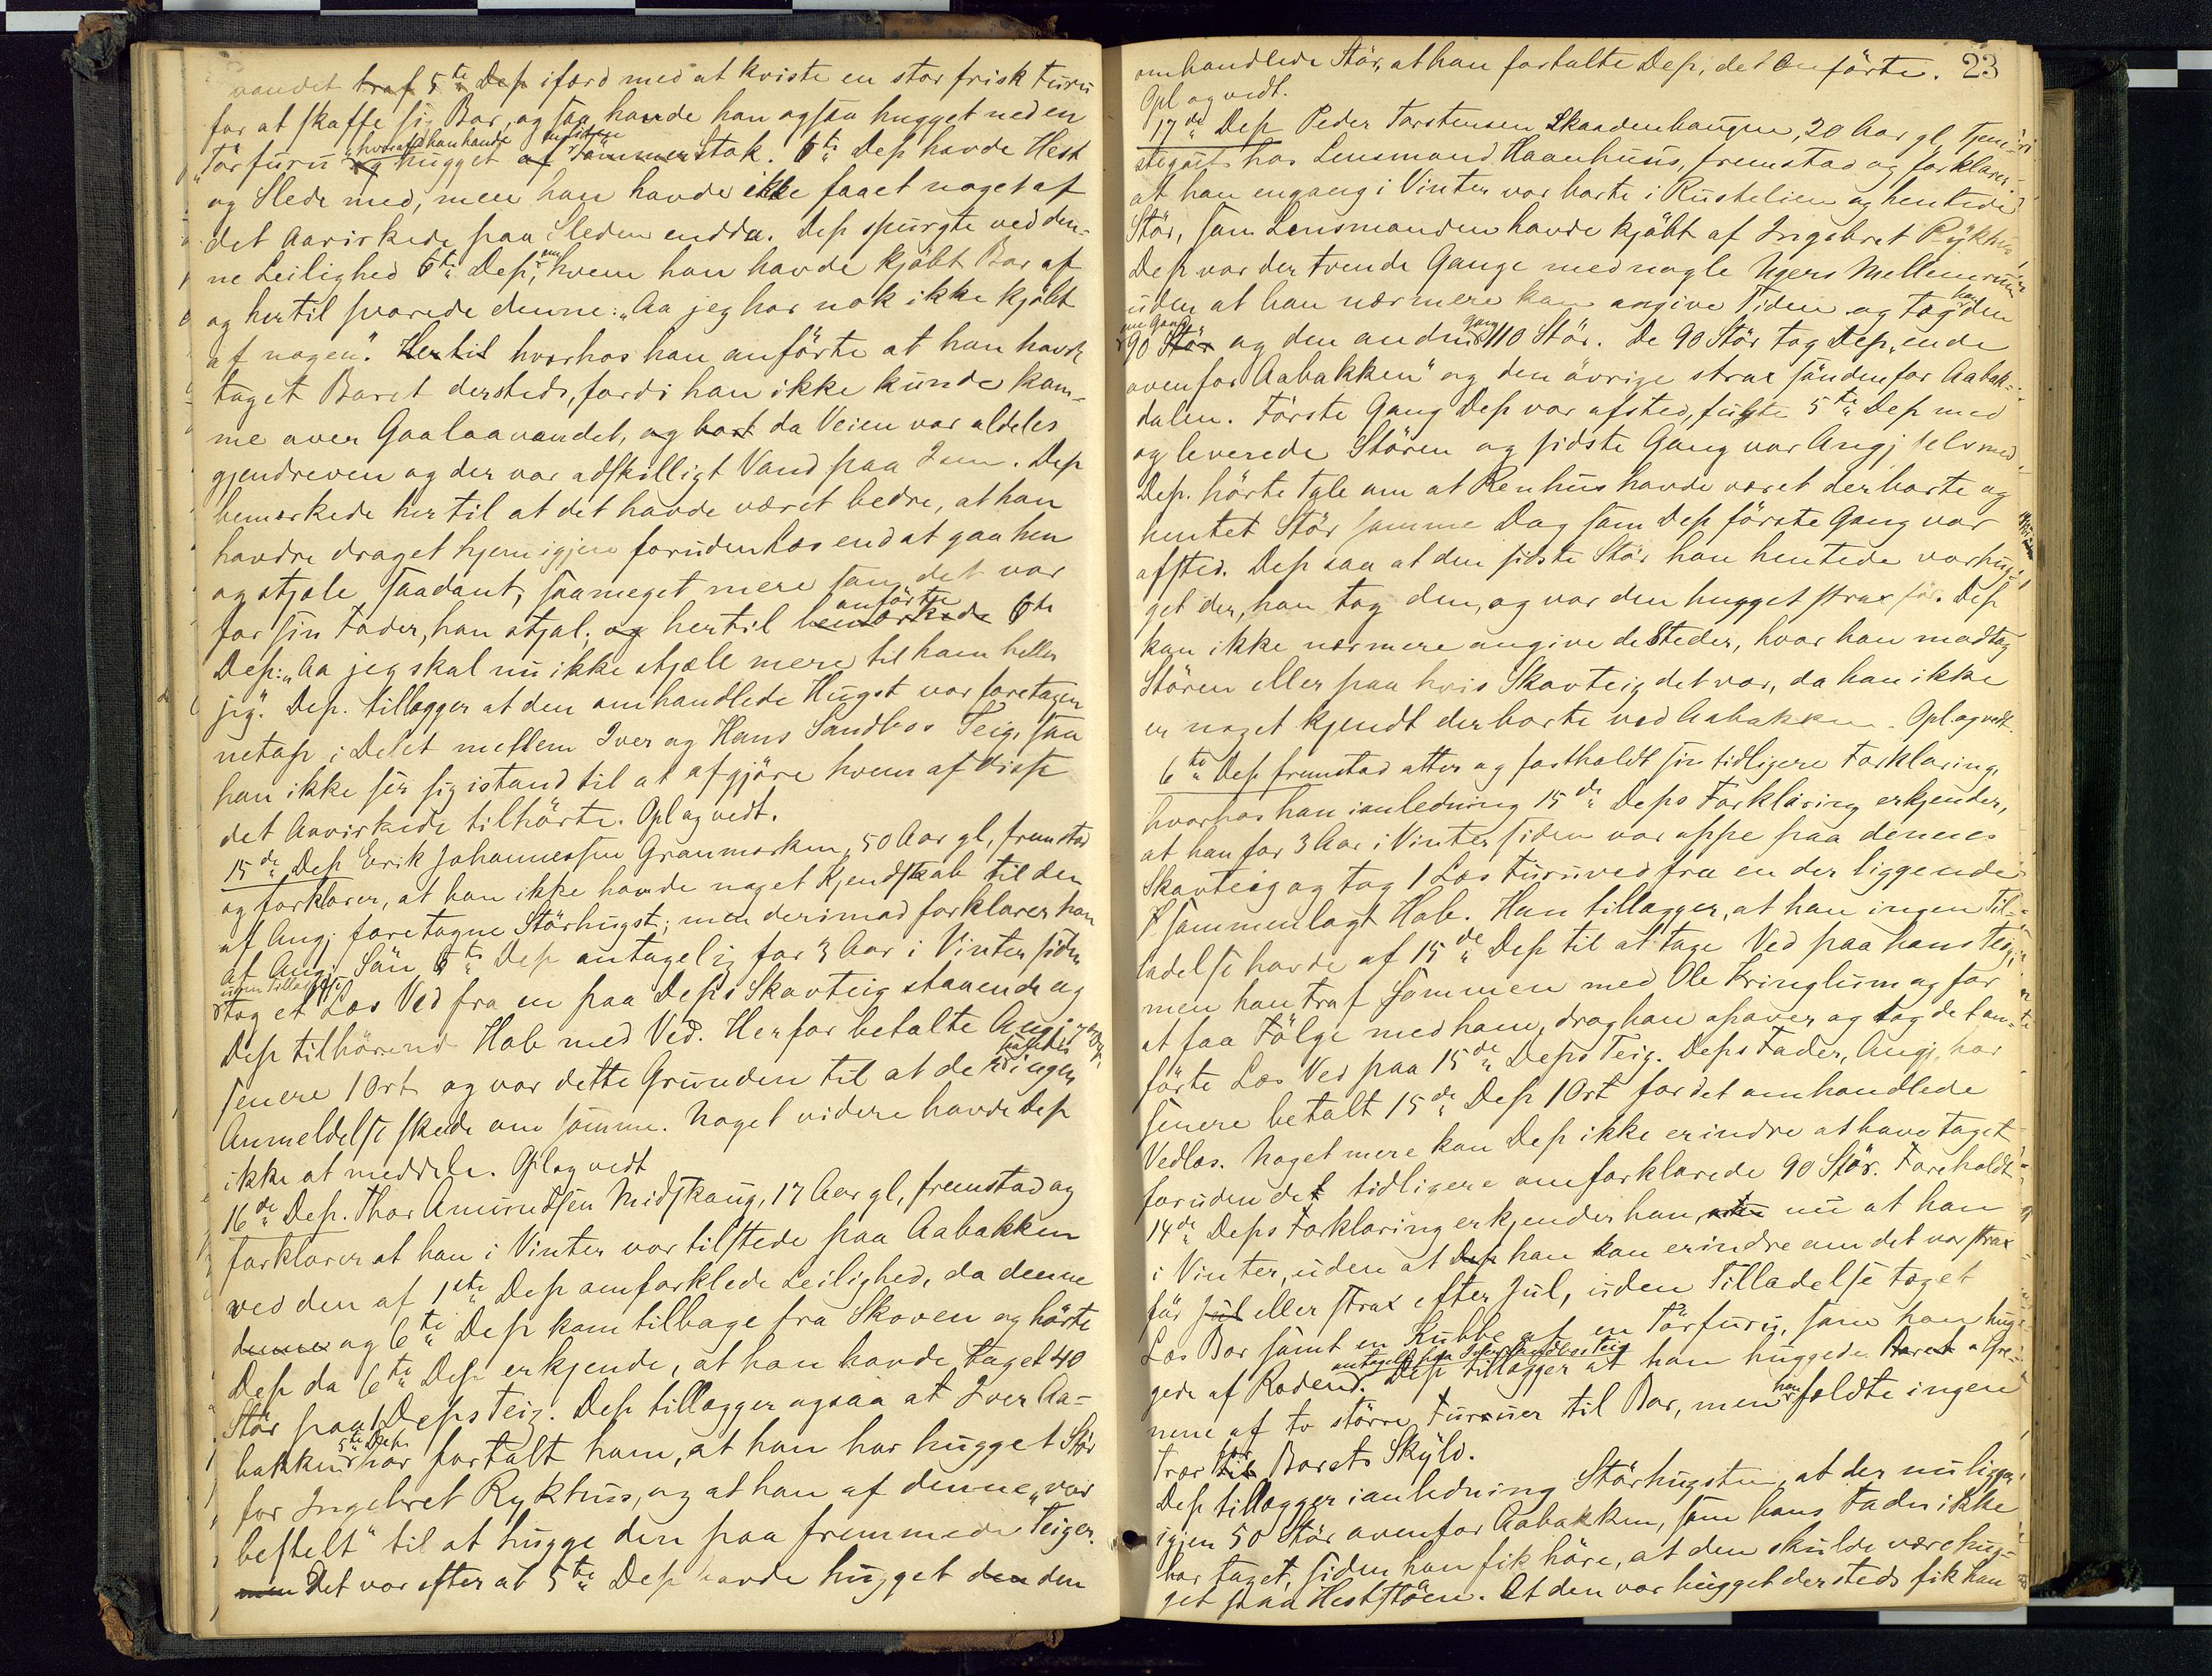 vandet traf 5te Dep ifærd med at kviste en stor frisk Furu
for at skaffe sig Bar, og saa havde han ogsaa hugget ned en
"Törfuru" og hvoraf han havde hugget af Tömmerstok. 6te Dep havde Hest
og Slede med, men han havde ikke faaet noget af
det Aavirkede paa Sleden endda. Dep spurgte ved den-
ne Leilighed 6te Dep, om hvem han havde kjöbt Bar af
og hertil svarede denne: "Aa jeg har nok ikke kjöbt
af nogen". Hertil hvorhos han anförte at han havde
taget Baret dersteds, fordi han ikke kunde kom-
me over Gaalaavandet, og bort da Veien var aldeles
gjendreven og der var adskilligt Vand paa Isen. Dep
bemærkede hertil at det havde været bedre, at han
havde draget hjem igjen foruden Læs end at gaa hen
og stjæle saadant, saameget mere som det var
for sin Fader, han stjal; og hertil bemærkede anförte 6te
Dep: "Aa jeg skal nu ikke stjæle mere til ham heller
jeg". Dep. tillægger at den omhandlede Hugst var foretagen
netop i Delet mellem Iver og Hans Sandbos Teig, saa
han ikke ser sig istand til at afgjöre hvem af disse
det Aavirkede tilhörte. Opl og vedt.
15de Dep Erik Johannessen Granmorken, 50 Aar gl, fremstod
og forklarer, at han ikke havde noget Kjendskab til den
af Angj. foretagne Störhugst; men derimod forklarer han
at Angj. Sön 6te Dep antagelig for 3 Aar i Vinter siden
uden Tilladelse tog et Læs Ved fra en paa Deps Skovteig staaende og
Dep tilhörende Hob med Ved. Herfor betalte Angj. Dep.
senere 1 Ort og var dette Grunden til at der ingen
Anmeldelse skede om samme. Noget videre havde Dep
ikke at meddele. Opl og vedt
16de Dep. Thor Amundsen Midtskaug, 17 Aar gl, fremstod og
forklarer at han i Vinter var tilstede paa Aabakken
ved den af 1ste Dep omforklede Leilighed, da denne
denne og 6te Dep kom tilbage fra Skoven og hörte
Dep da 6te Dep erkjende, at han havde taget 40
Stör paa 1 Deps Teig. Dep tillægger ogsaa at Iver Aa-
bakken 5te Dep har fortalt ham, at han har hugget Stör
for Ingebret Rykhus, og at han af denne "var
bestelt" til at hugge den paa fremmede Teiger.
men Det var efter at 5te Dep havde hugget den den
23
omhandlede Stör, at han fortalte Dep, det Anförte.
Opl og vedt.
17de Dep Peder Torstensen Skaadenhaugen, 20 Aar gl, Tjen-
stegut hos Lensmand Haanhuus, fremstod og forklarer.
at han engang i Vinter var borte i Rustelien og hentede
Stör, som Lensmanden havde kjöbt af Ingebret Rykhus
Dep var der tvende Gange med nogle Ugers Mellemrum
uden at han nærmere kan angive Tiden og tog han den
ene Gang 90 Stör og den anden Gang 110 Stör. De 90 Stör tog Dep. "ende
ovenfor Aabakken" og den övrige strax söndenfor Aabak-
dalen. Förste Gang Dep var afsted, fulgte 5te Dep med
og leverede Stören og sidste Gang var Angj selv med
Dep. hörte tale om at Renhus havde været derborte og
hentet Stör samme Dag som Dep förste Gang var
afsted. Dep saa at den sidste Stör han hentede var hug-
get der, han tog den, og var den hugget strax för. Dep
kan ikke nærmere angive de Steder, hvor han modtog
Stören eller paa hvis Skovteig det var, da han ikke
er noget kjendt derborte ved Aabakken. Opl. og vedt.
6te Dep fremstod atter og fastholdt sin tidligere Forklaring,
hvorhos han ianledning 15de Deps Forklaring erkjender,
at han for 3 Aar i Vinter siden var oppe paa dennes
Skovteig og tog 1 Læs Furuved fra en der liggende
sammenlagt Hob. Han tillægger, at han ingen Til-
ladelse havde af 15de Dep til at tage Ved paa hans Teig,
men han traf sammen med Ole Kringlum og for
at faa Fölge med ham, drog han opover og tog det an-
förte Læs Ved paa 15de Deps Teig. Deps Fader, Angj, har
senere betalt 15de Dep 1 Ort for det omhandlede
Vedlæs. Noget mere kan Dep ikke erindre at have taget
foruden det tidligere omforklarede 90 Stör. Foreholdt
14de Deps Forklaring erkjender han, nu at han
i Vinter, uden at Dep han kan erindre om det var strax
för Jul eller strax efter Jul, uden Tilladelse taget
Læs Bar samt en Kubbe af en Törfuru, som han hug-
gede af Roden. antagelig paa Iver Sandbos Teig Dep tillægger at han huggede Baret a Gre-
nene af to större Furuer til Bar, men han fældte ingen
Trær til for Barets Skyld.
Dep tillægger ianledning Störhugsten, at der nu ligger
igjen 50 Stör ovenfor Aabakken, som hans Fader ikke
har taget, siden han fik höre, at den skulde være hug-
get paa Heststöen. At den var hugget dersteds fik han